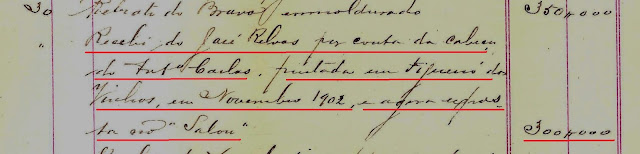 30 Retrato do Bravo, emmoldurado 350,000
" Recebi do José Relvas por conta da cabeça
do Antº Carlos, pintada em Figueiró dos
Vinhos, em Novembro 1902, e agora expos-
ta no "Salon" 300,000